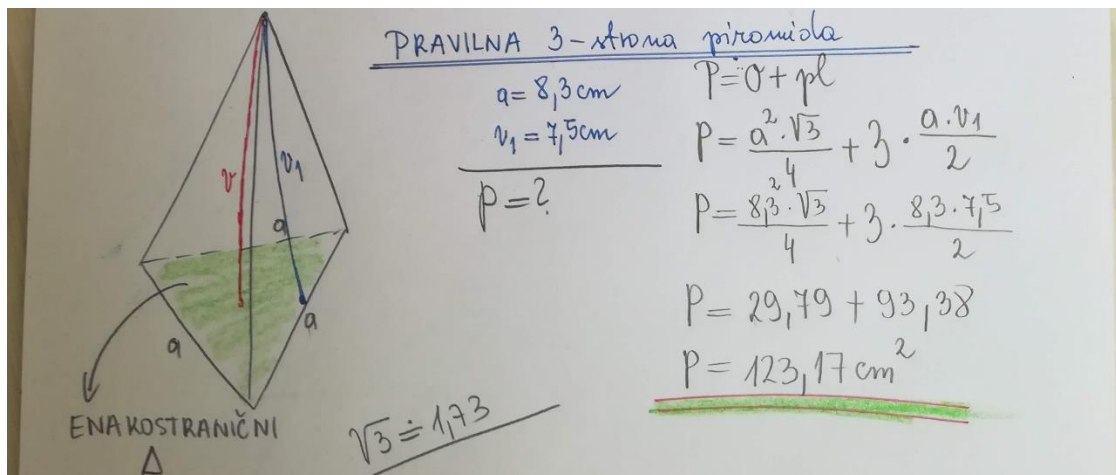 PRAVILNA 3-strana piramida
a = 8,3 cm
v₁ = 7,5 cm
P = ?
P = O + pl
P = a²·√3/4 + 3 · a·v₁/2
P = 8,3²·√3/4 + 3 · 8,3·7,5/2
P = 29,79 + 93,38
P = 123,17 cm²
v
v₁
a
a
a
ENAKOSTRANIČNI
Δ
√3 ≐ 1,73